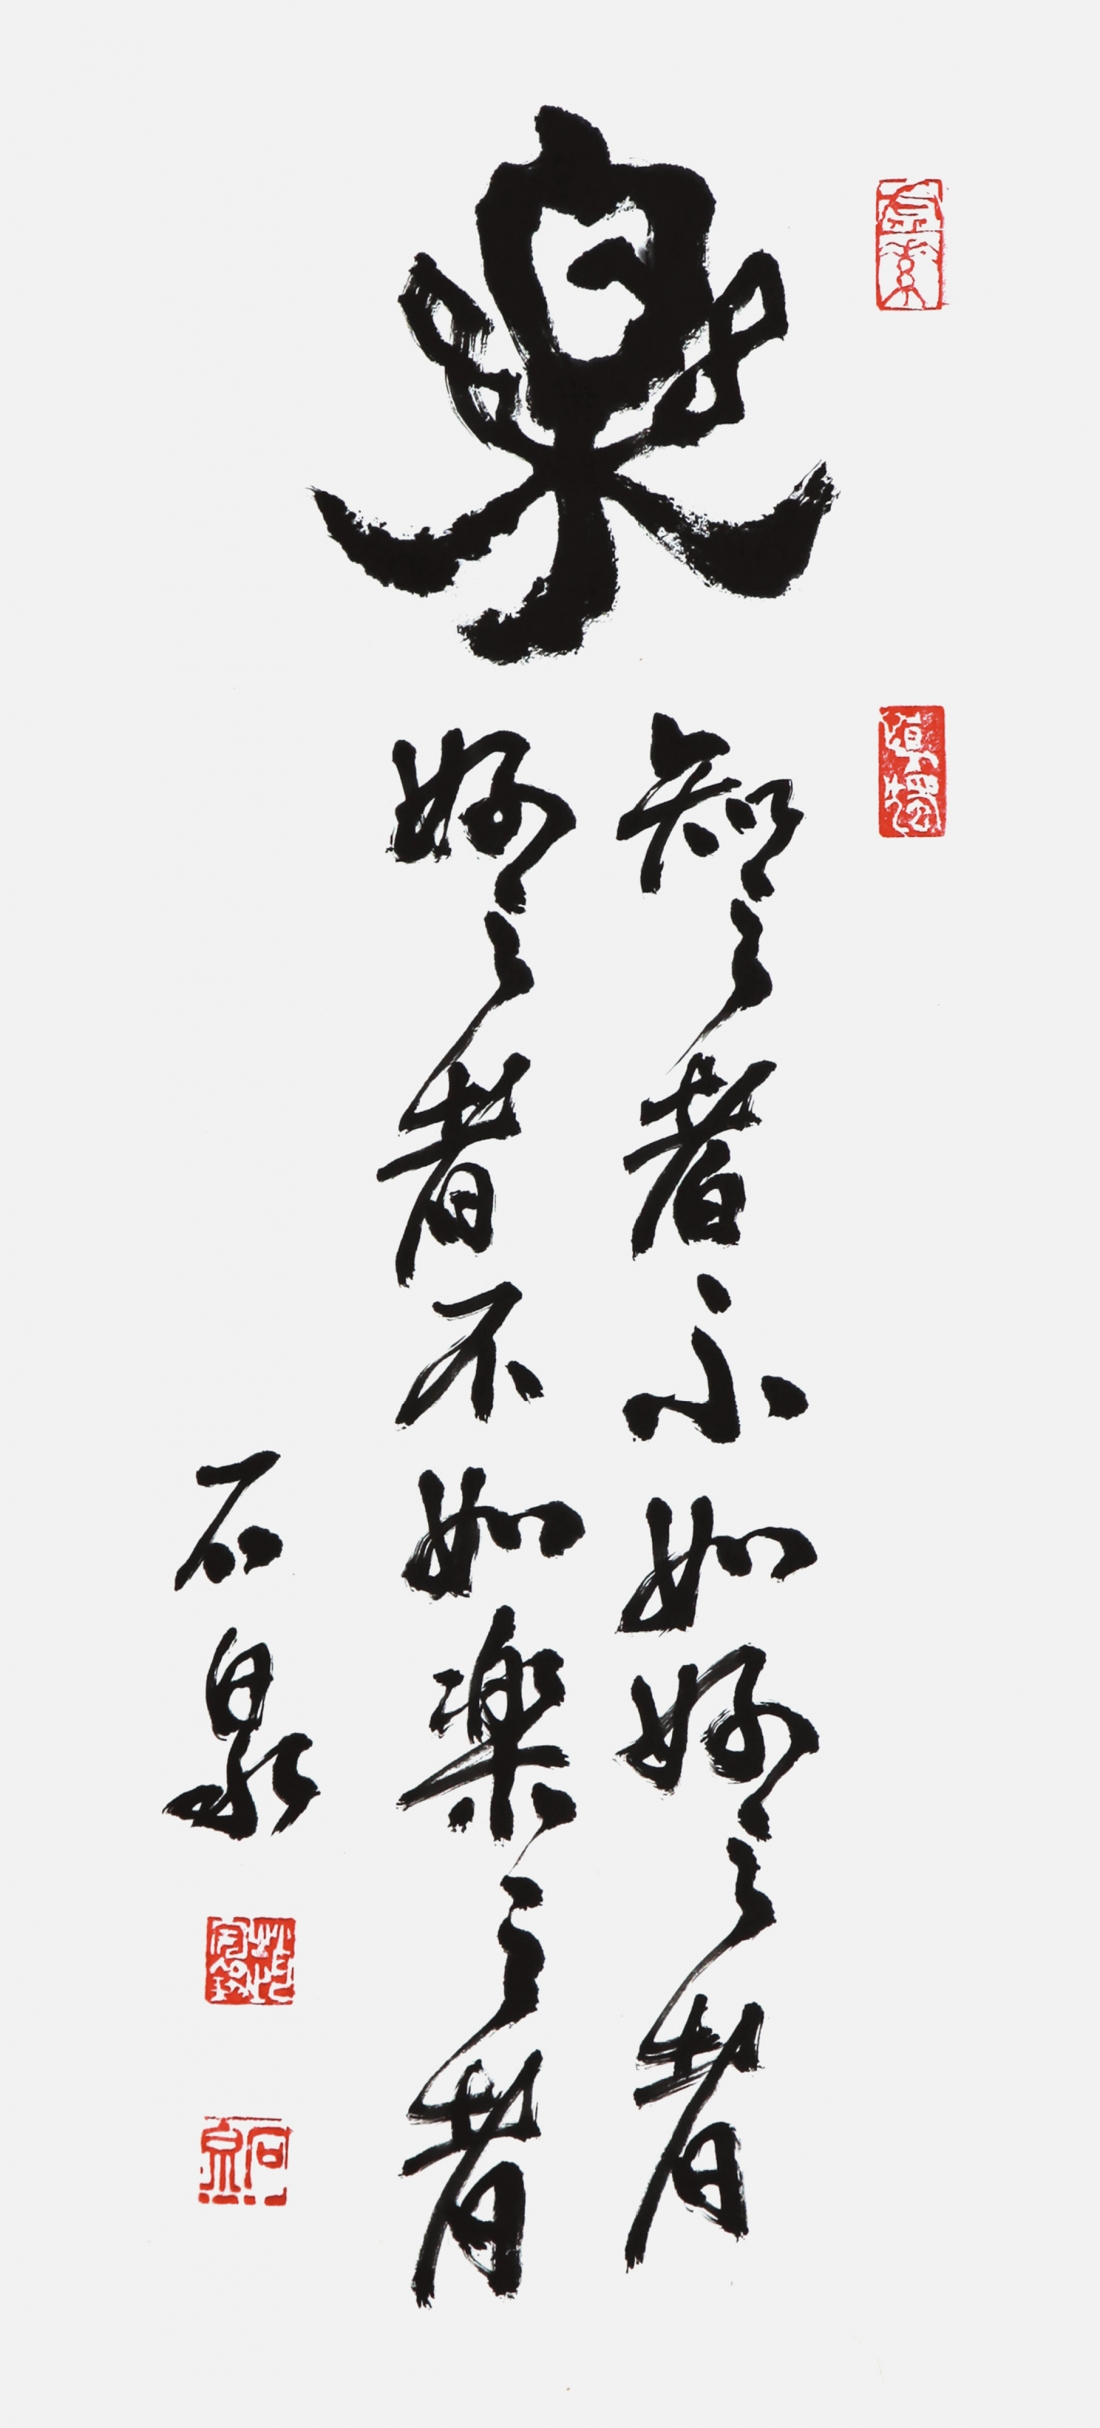 樂
知之者不如好之者
好之者不如楽之者
石泉
石泉